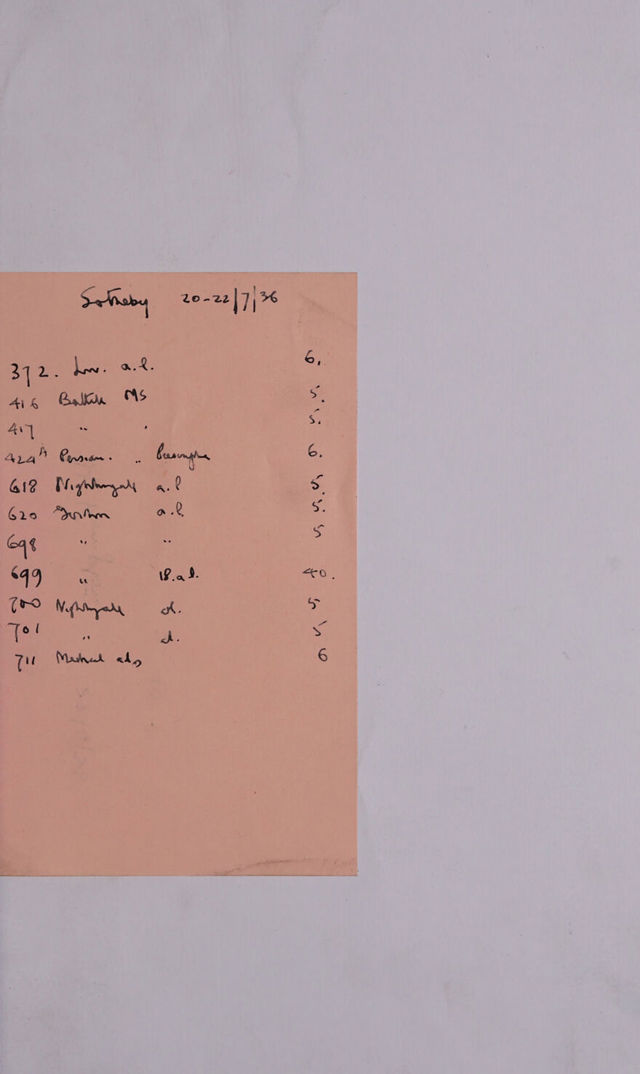 Sotheby 20-22/7/36
372. a.l. 6.
416 MS 5.
417 " " 5.
424A Persian. " 6.
618 Nightingale a.l 5.
620 a.l. 5.
698 " " 5
699 " 18.a.l. 40.
700 Nightingale al. 5
701 " al. 5
711 Medical ads 6